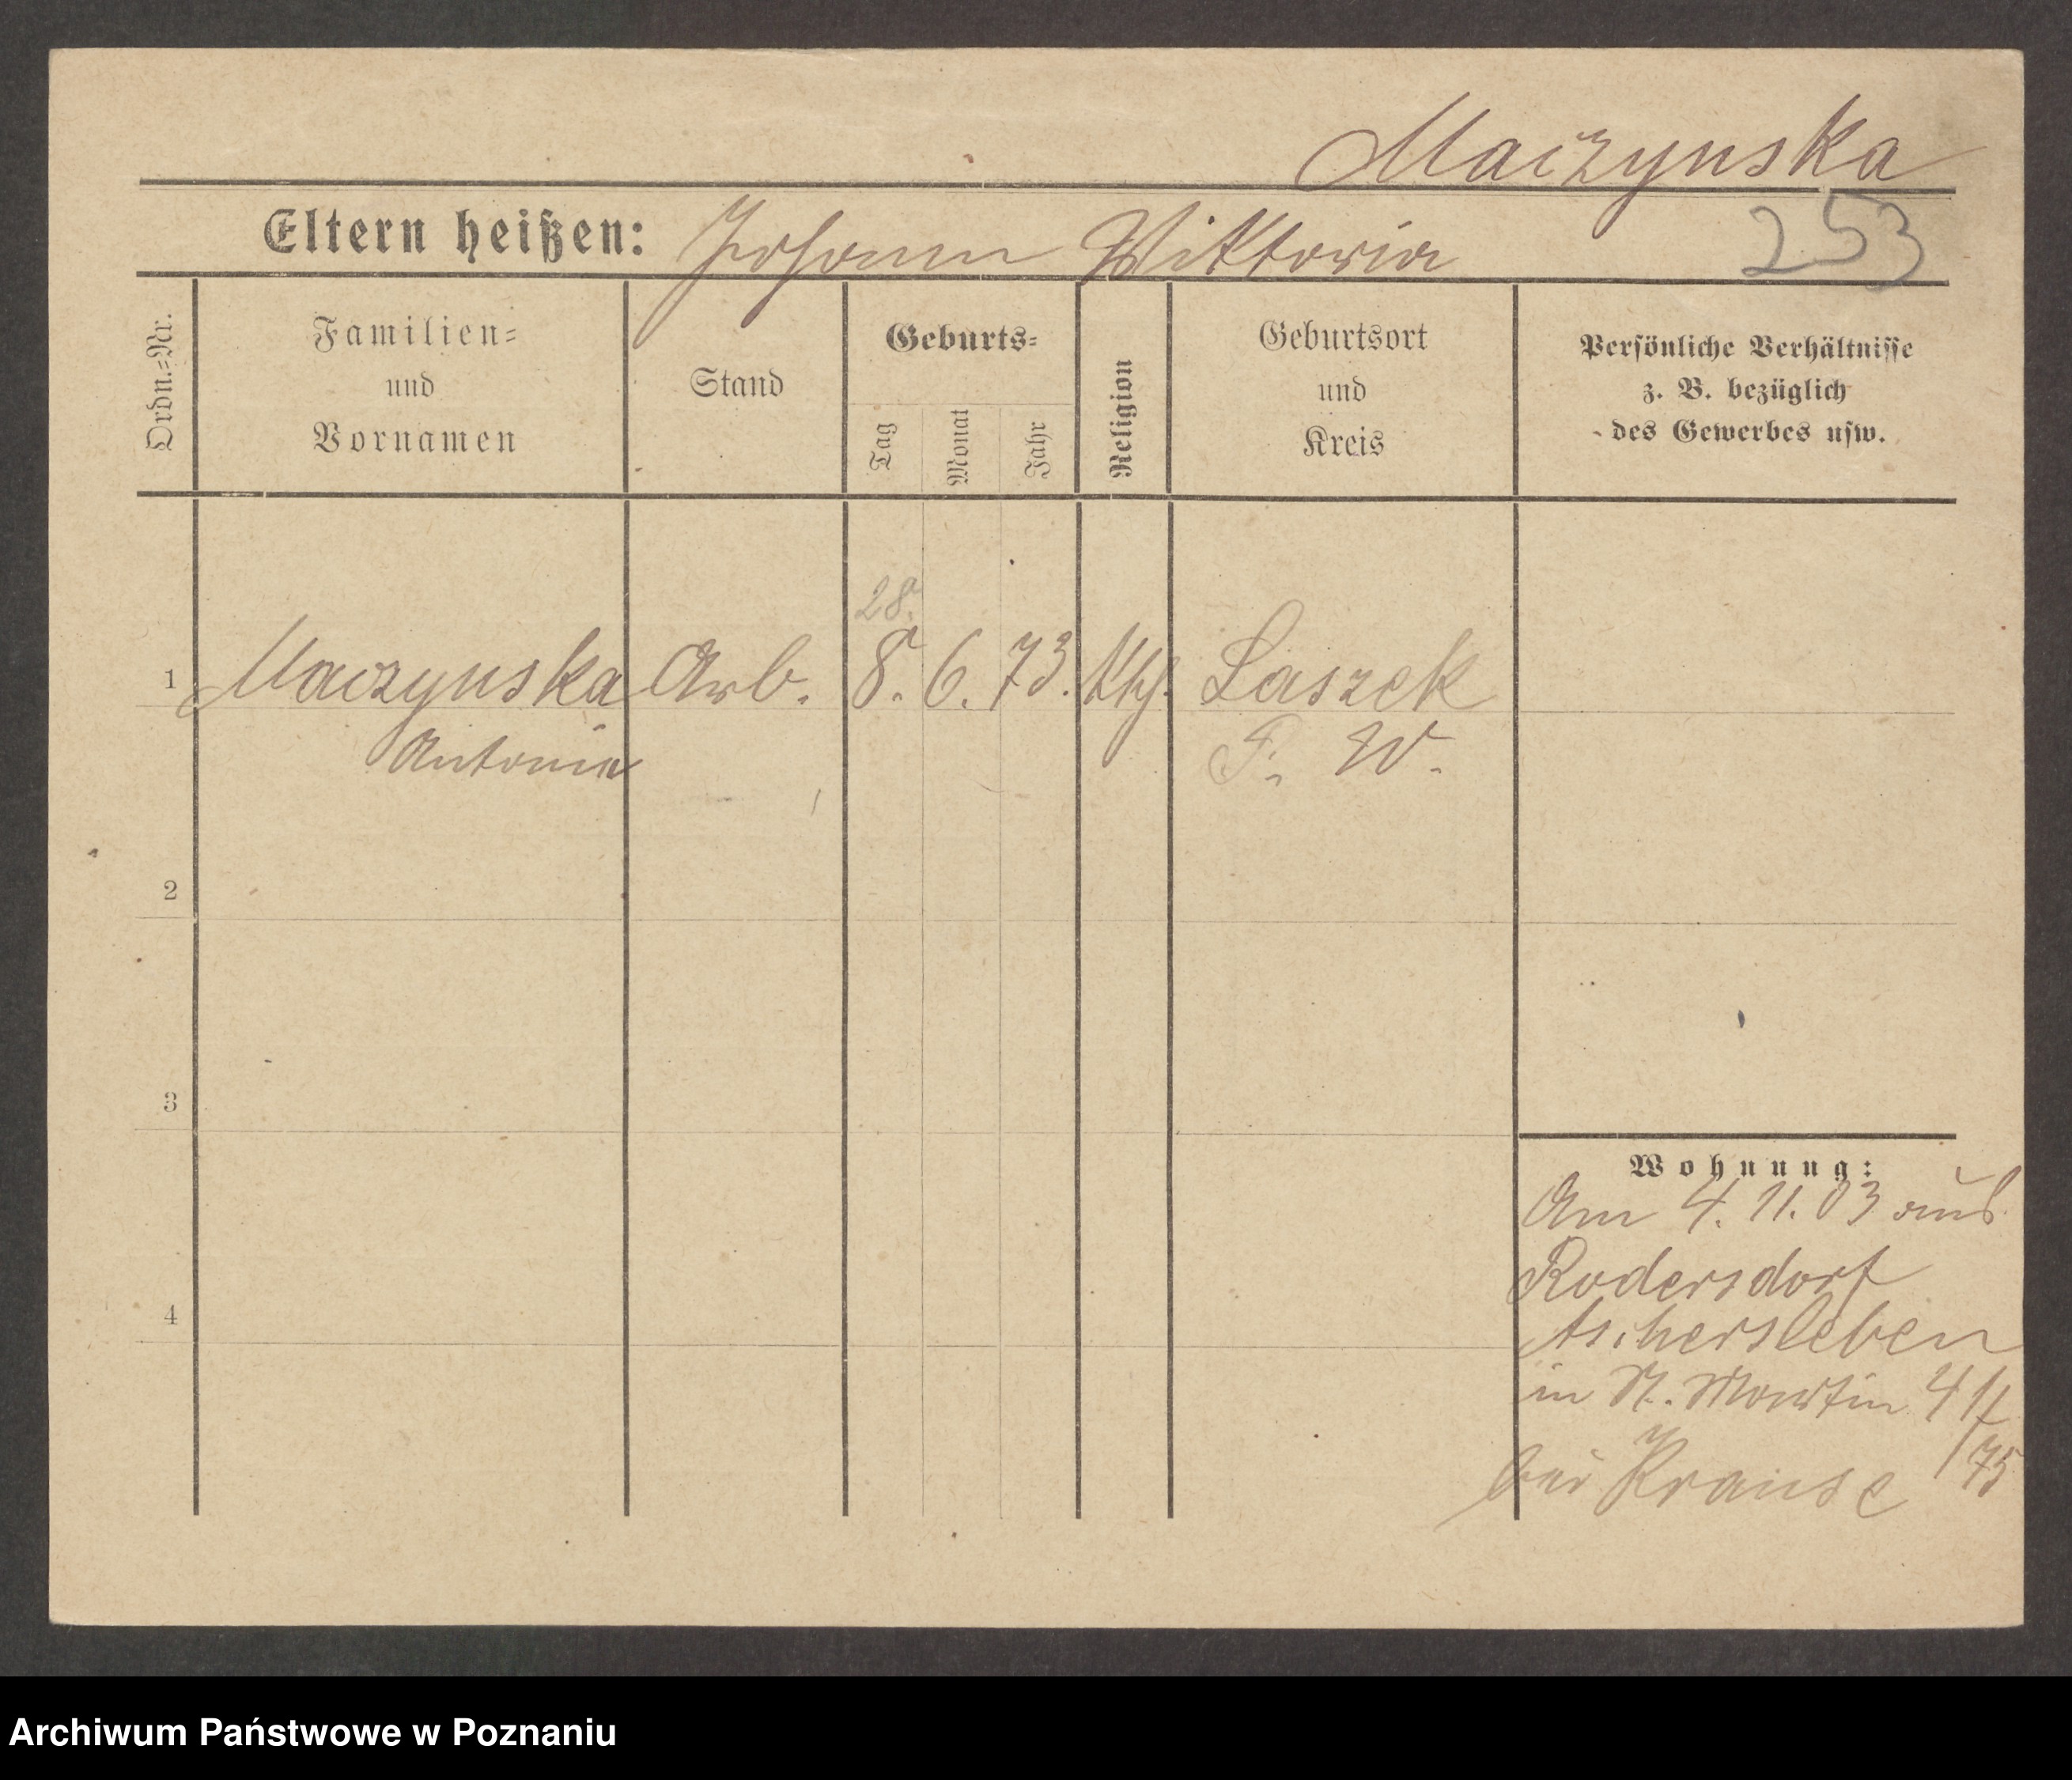 Maczynska
Eltern heißen: Johann Viktoria 253
Ordn.=Nr.
Familien=
und
Vornamen
Stand
Geburts=
Tag
Monat
Jahr
Religion
Geburtsort
und
Kreis
Persönliche Verhältnisse
z. B. bezüglich
des Gewerbes usw.
28.
1 Maczynska Arb. 8. 6. 73. kth. Laszek
Antonie P. W.
2
3
Wohnung:
Am 4. 11. 03 aus
Rodersdorf
4
Aschersleben
in St. Martin 4 11
75
bei Krause
Archiwum Państwowe w Poznaniu